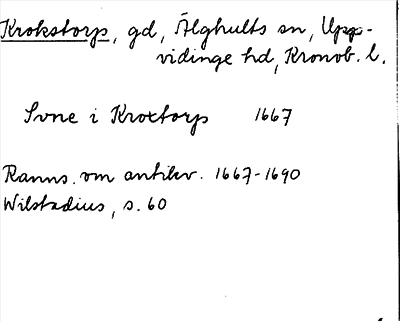 Krokstorp, gd, Älghults sn, Upp-
vidinge hd, Kronob. l.
Svne i Kroxtorp 1667
Ranns. om antikv. 1667-1690
Wilstadius, s. 60